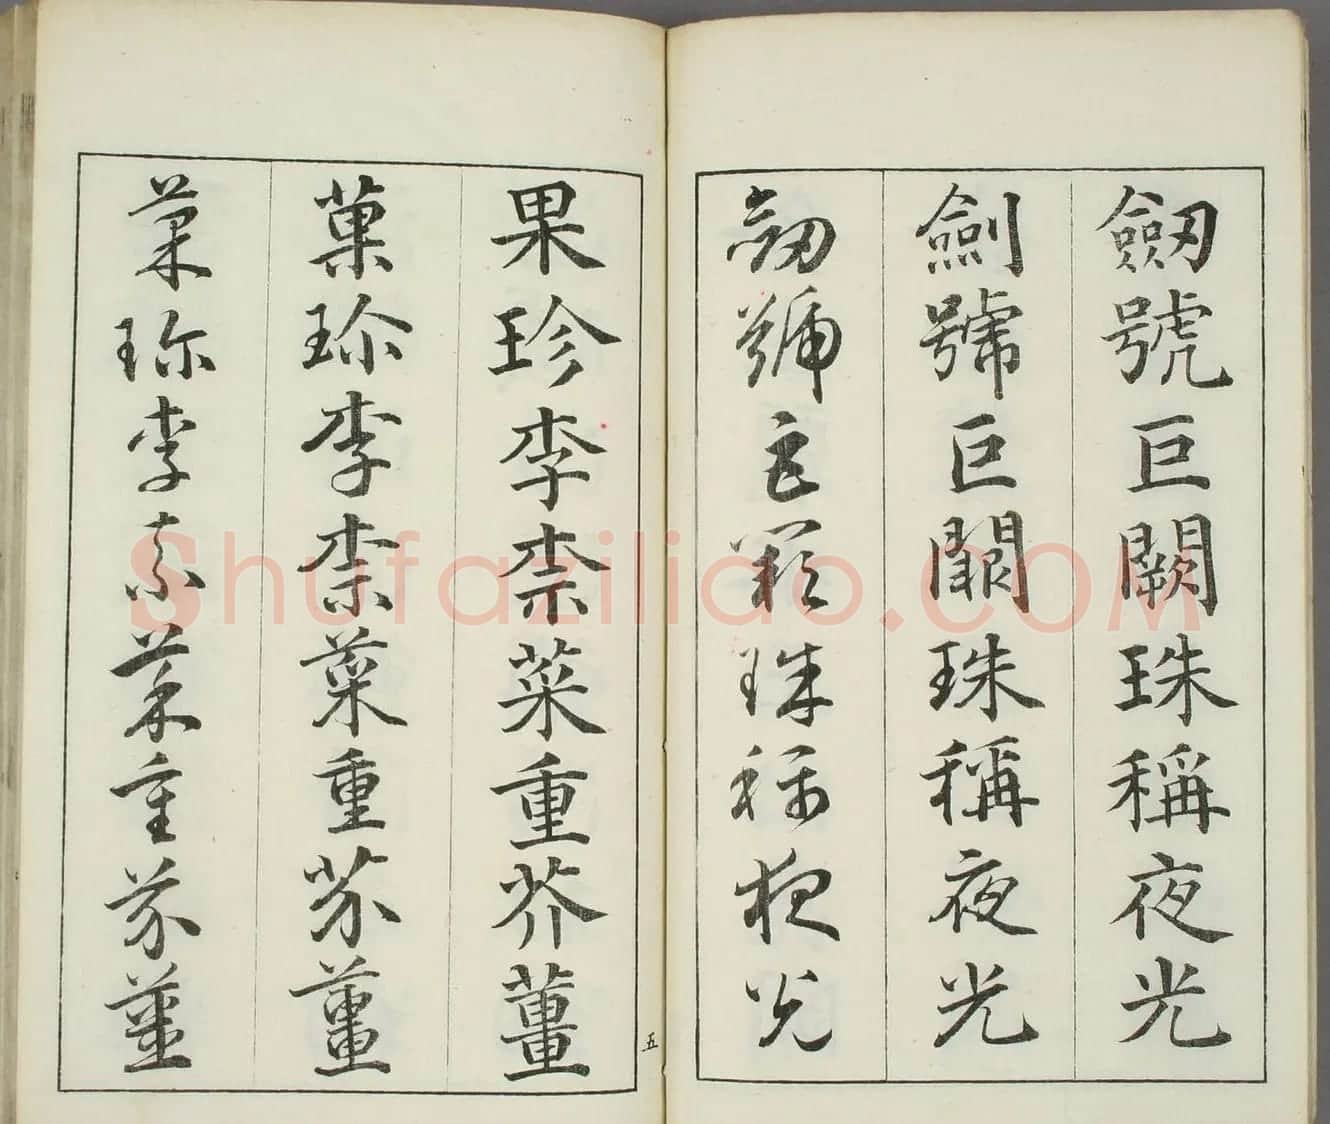 劒號巨闕珠稱夜光
劍號巨闕珠稱夜光
劒號巨闕珠稱夜光
果珍李柰菜重芥薑
菓珎李柰菜重芥薑
菓珎李柰菜重芥薑
五
Shufaziliao.COM